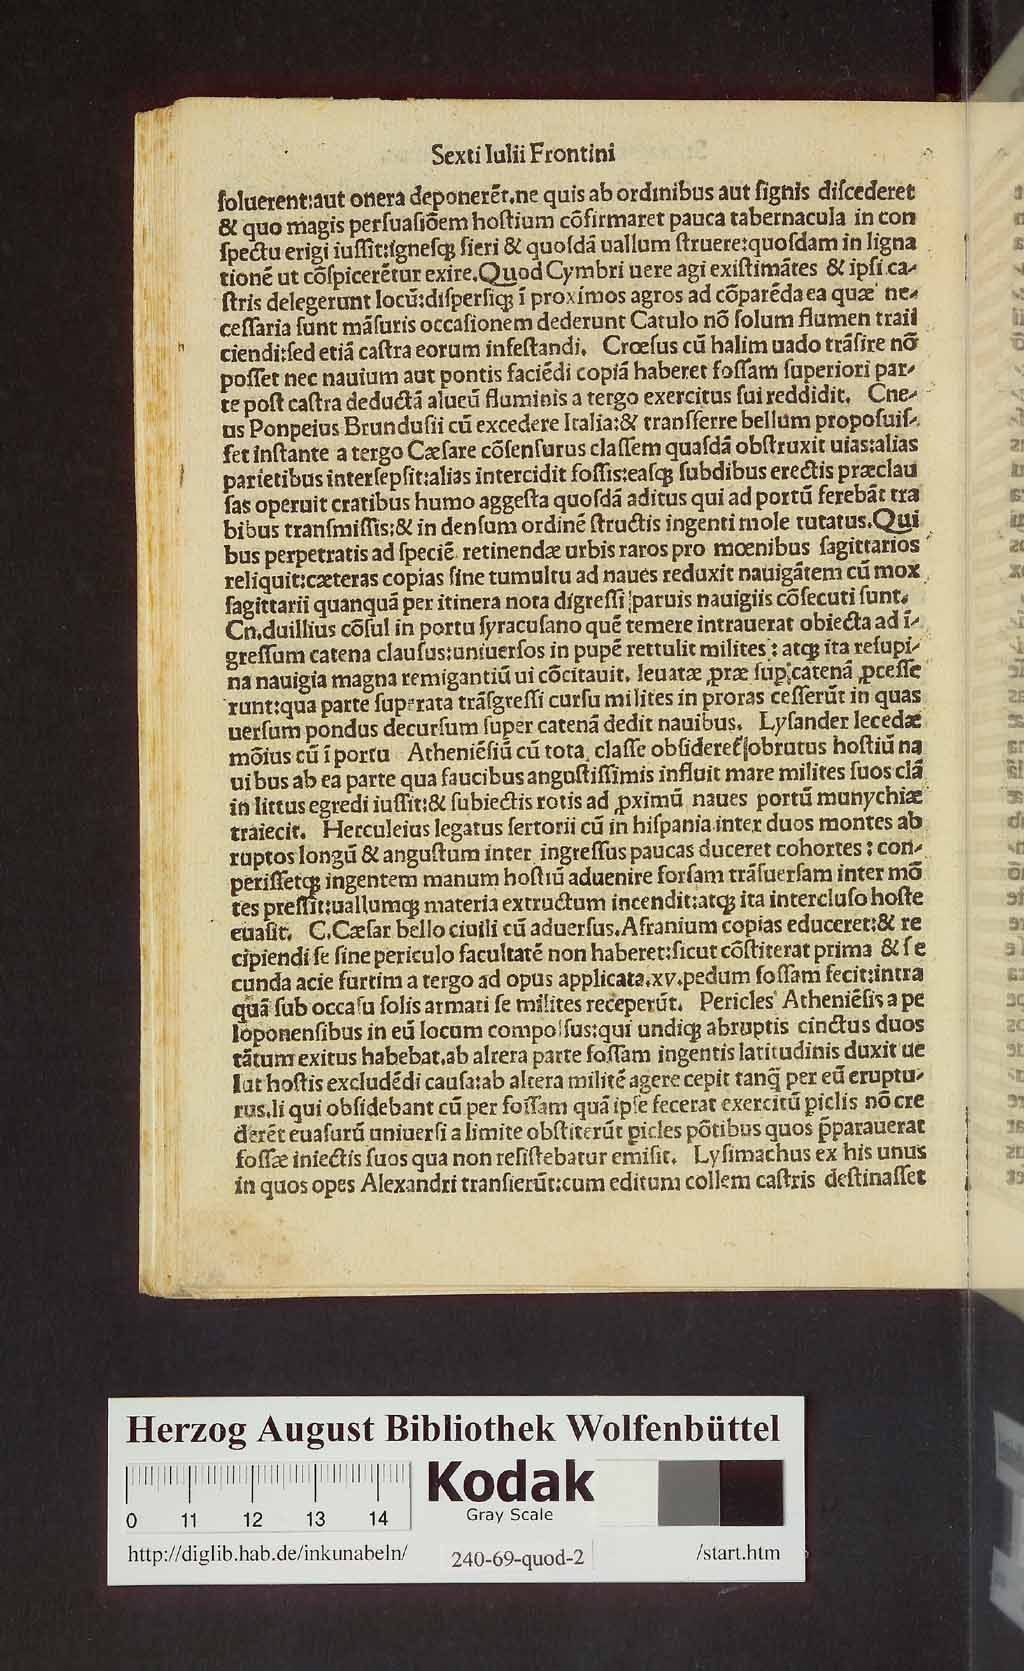 Sexti Iulii Frontini
ſoluerent:aut onera deponerẽt.ne quis ab ordinibus aut ſignis diſcederet
& quo magis perſuaſiõem hoſtium cõfirmaret pauca tabernacula in con
ſpectu erigi iuſſit:igneſqꝫ fieri & quoſdã uallum ſtruere:quoſdam in ligna
tionẽ ut cõſpicerẽtur exire.Quod Cymbri uere agi exiſtimãtes & ipſi ca-
ſtris delegerunt locũ:diſperſiqꝫ ĩ proximos agros ad cõparẽda ea quæ ne-
ceſſaria ſunt mãſuris occaſionem dederunt Catulo nõ ſolum flumen traii
ciendi:ſed etiã caſtra eorum infeſtandi. Crœſus cũ halim uado trãſire nõ
poſſet nec nauium aut pontis faciẽdi copiã haberet foſſam ſuperiori par-
te poſt caſtra deductã alueũ fluminis a tergo exercitus ſui reddidit. Cne-
us Ponpeius Brunduſii cũ excedere Italia:& tranſferre bellum propoſuiſ-
ſet inſtante a tergo Cæſare cõſenſurus claſſem quaſdã obſtruxit uias:alias
parietibus interſepſit:alias intercidit foſſis:eaſqꝫ ſubdibus erectis præclau
ſas operuit cratibus humo aggeſta quoſdã aditus qui ad portũ ferebãt tra
bibus tranſmiſſis:& in denſum ordinẽ ſtructis ingenti mole tutatus.Qui
bus perpetratis ad ſpeciẽ retinendæ urbis raros pro mœnibus ſagittarios
reliquit:cæteras copias ſine tumultu ad naues reduxit nauigãtem cũ mox
ſagittarii quanquã per itinera nota digreſſi paruis nauigiis cõſecuti ſunt.
Cn.duillius cõſul in portu ſyracuſano quẽ temere intrauerat obiecta ad ĩ-
greſſum catena clauſus:uniuerſos in pupẽ rettulit milites: atqꝫ ita reſupi-
na nauigia magna remigantiũ ui cõcitauit. leuatæ ꝓræ ſup catenã ꝓceſſe
runt:qua parte ſuperata trãſgreſſi curſu milites in proras ceſſerũt in quas
uerſum pondus decurſum ſuper catenã dedit nauibus. Lyſander lecedæ
mõius cũ ĩ portu Atheniẽſiũ cũ tota claſſe obſideret obrutus hoſtiũ na
uibus ab ea parte qua faucibus anguſtiſſimis influit mare milites ſuos clã
in littus egredi iuſſit:& ſubiectis rotis ad ꝓximũ naues portũ munychiæ
traiecit. Herculeius legatus ſertorii cũ in hiſpania inter duos montes ab
ruptos longũ & anguſtum inter ingreſſus paucas duceret cohortes: con-
periſſetqꝫ ingentem manum hoſtiũ aduenire forſam trãſuerſam inter mõ
tes preſſit:uallumqꝫ materia extructum incendit:atqꝫ ita intercluſo hoſte
euaſit. C.Cæſar bello ciuili cũ aduerſus.Afranium copias educeret:& re
cipiendi ſe ſine periculo facultatẽ non haberet:ſicut cõſtiterat prima & ſe
cunda acie furtim a tergo ad opus applicata.xv.pedum foſſam fecit:intra
quã ſub occaſu ſolis armati ſe milites receperũt. Pericles Atheniẽſis a pe
loponenſibus in eũ locum compolſus:qui undiqꝫ abruptis cinctus duos
tãtum exitus habebat.ab altera parte foſſam ingentis latitudinis duxit ue
lut hoſtis excludẽdi cauſa:ab altera militẽ agere cepit tanq̃ per eũ eruptu-
rus.Ii qui obſidebant cũ per foſſam quã ipſe fecerat exercitũ ꝑiclis nõ cre
derẽt euaſurũ uniuerſi a limite obſtiterũt ꝑicles põtibus quos p̃parauerat
foſſæ iniectis ſuos qua non reſiſtebatur emiſit. Lyſimachus ex his unus
in quos opes Alexandri tranſierũt:cum editum collem caſtris deſtinaſſet
Herzog August Bibliothek Wolfenbüttel
Kodak
Gray Scale
0 11 12 13 14
http://diglib.hab.de/inkunabeln/ 240-69-quod-2 /start.htm